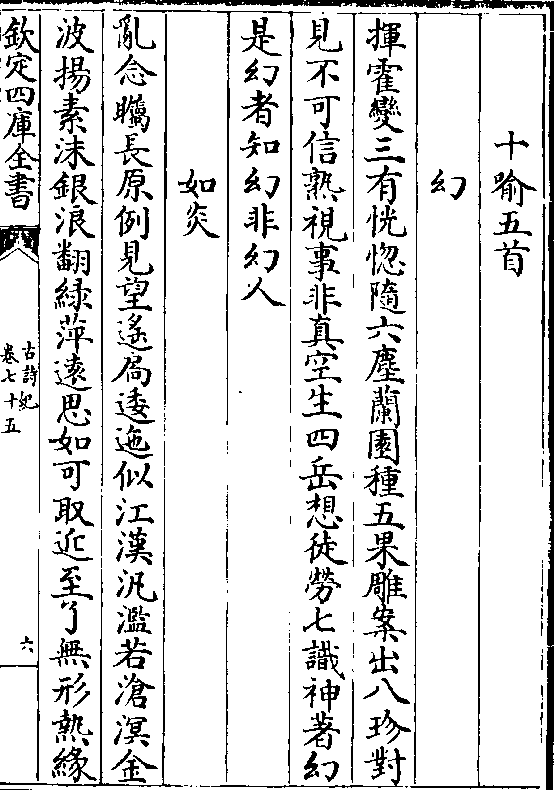 十喻五首
幻
揮霍變三有恍惚隨六塵蘭園種五果雕案出八珍對
見不可信熟視事非真空生四岳想徒勞七識神著幻
是幻者知幻非幻人
如炎
亂念矚長原例見望遙扃逶迤似江漢汎濫若滄溟金
波揚素沫銀浪翻綠萍遠思如可取近至了無形熟緣
欽定四庫全書
古詩紀
卷七十五
六